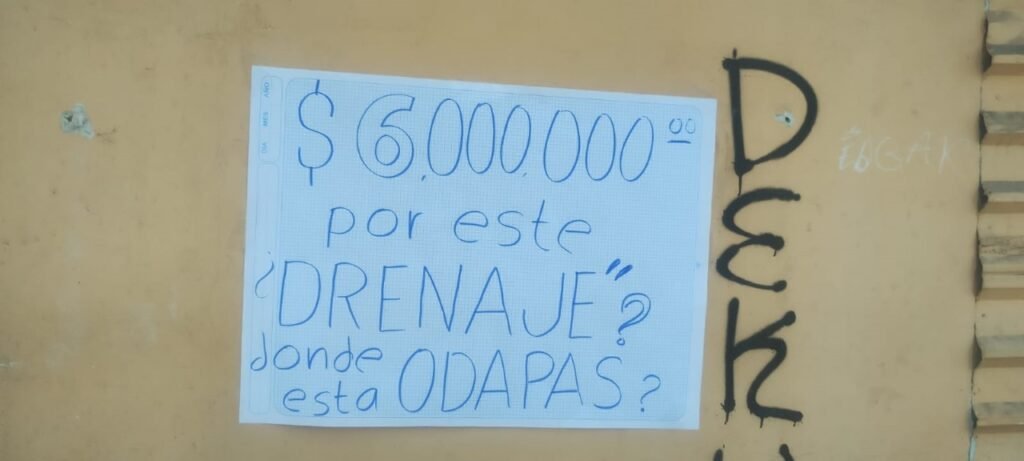 DIA MES AÑO
$ 6,000,000 00
por este
¿DRENAJE"?
donde
esta ODAPAS?
DEK